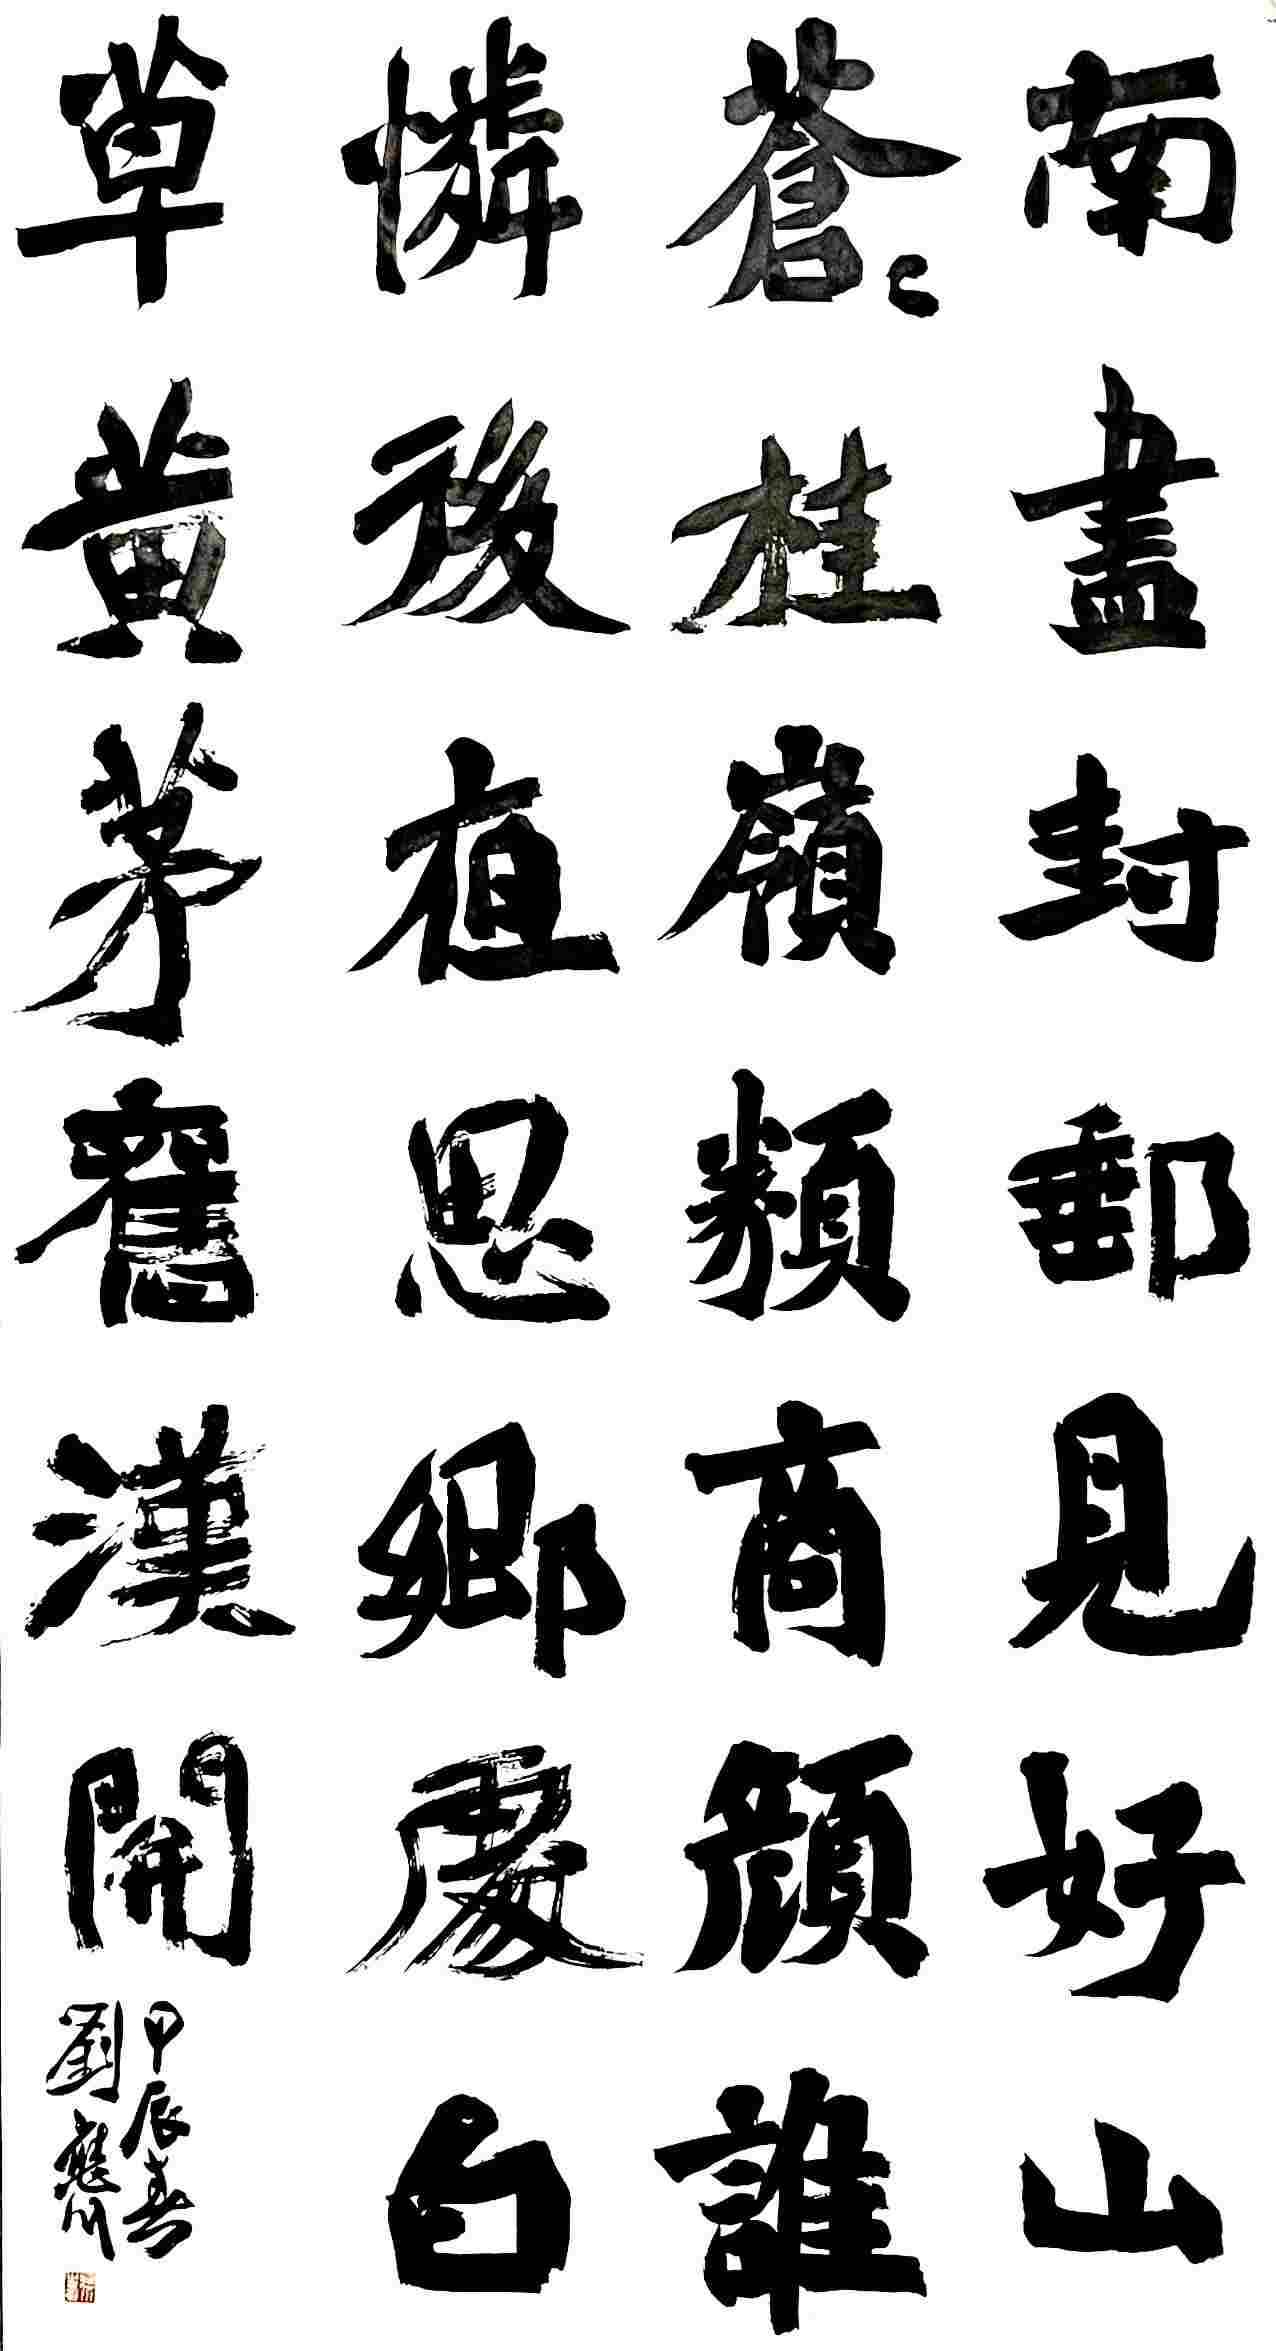 南盡封郵見好山
蒼〻桂嶺類商顏誰
憐後直思鄉處白
草黃茅舊漢關
甲辰春
劉